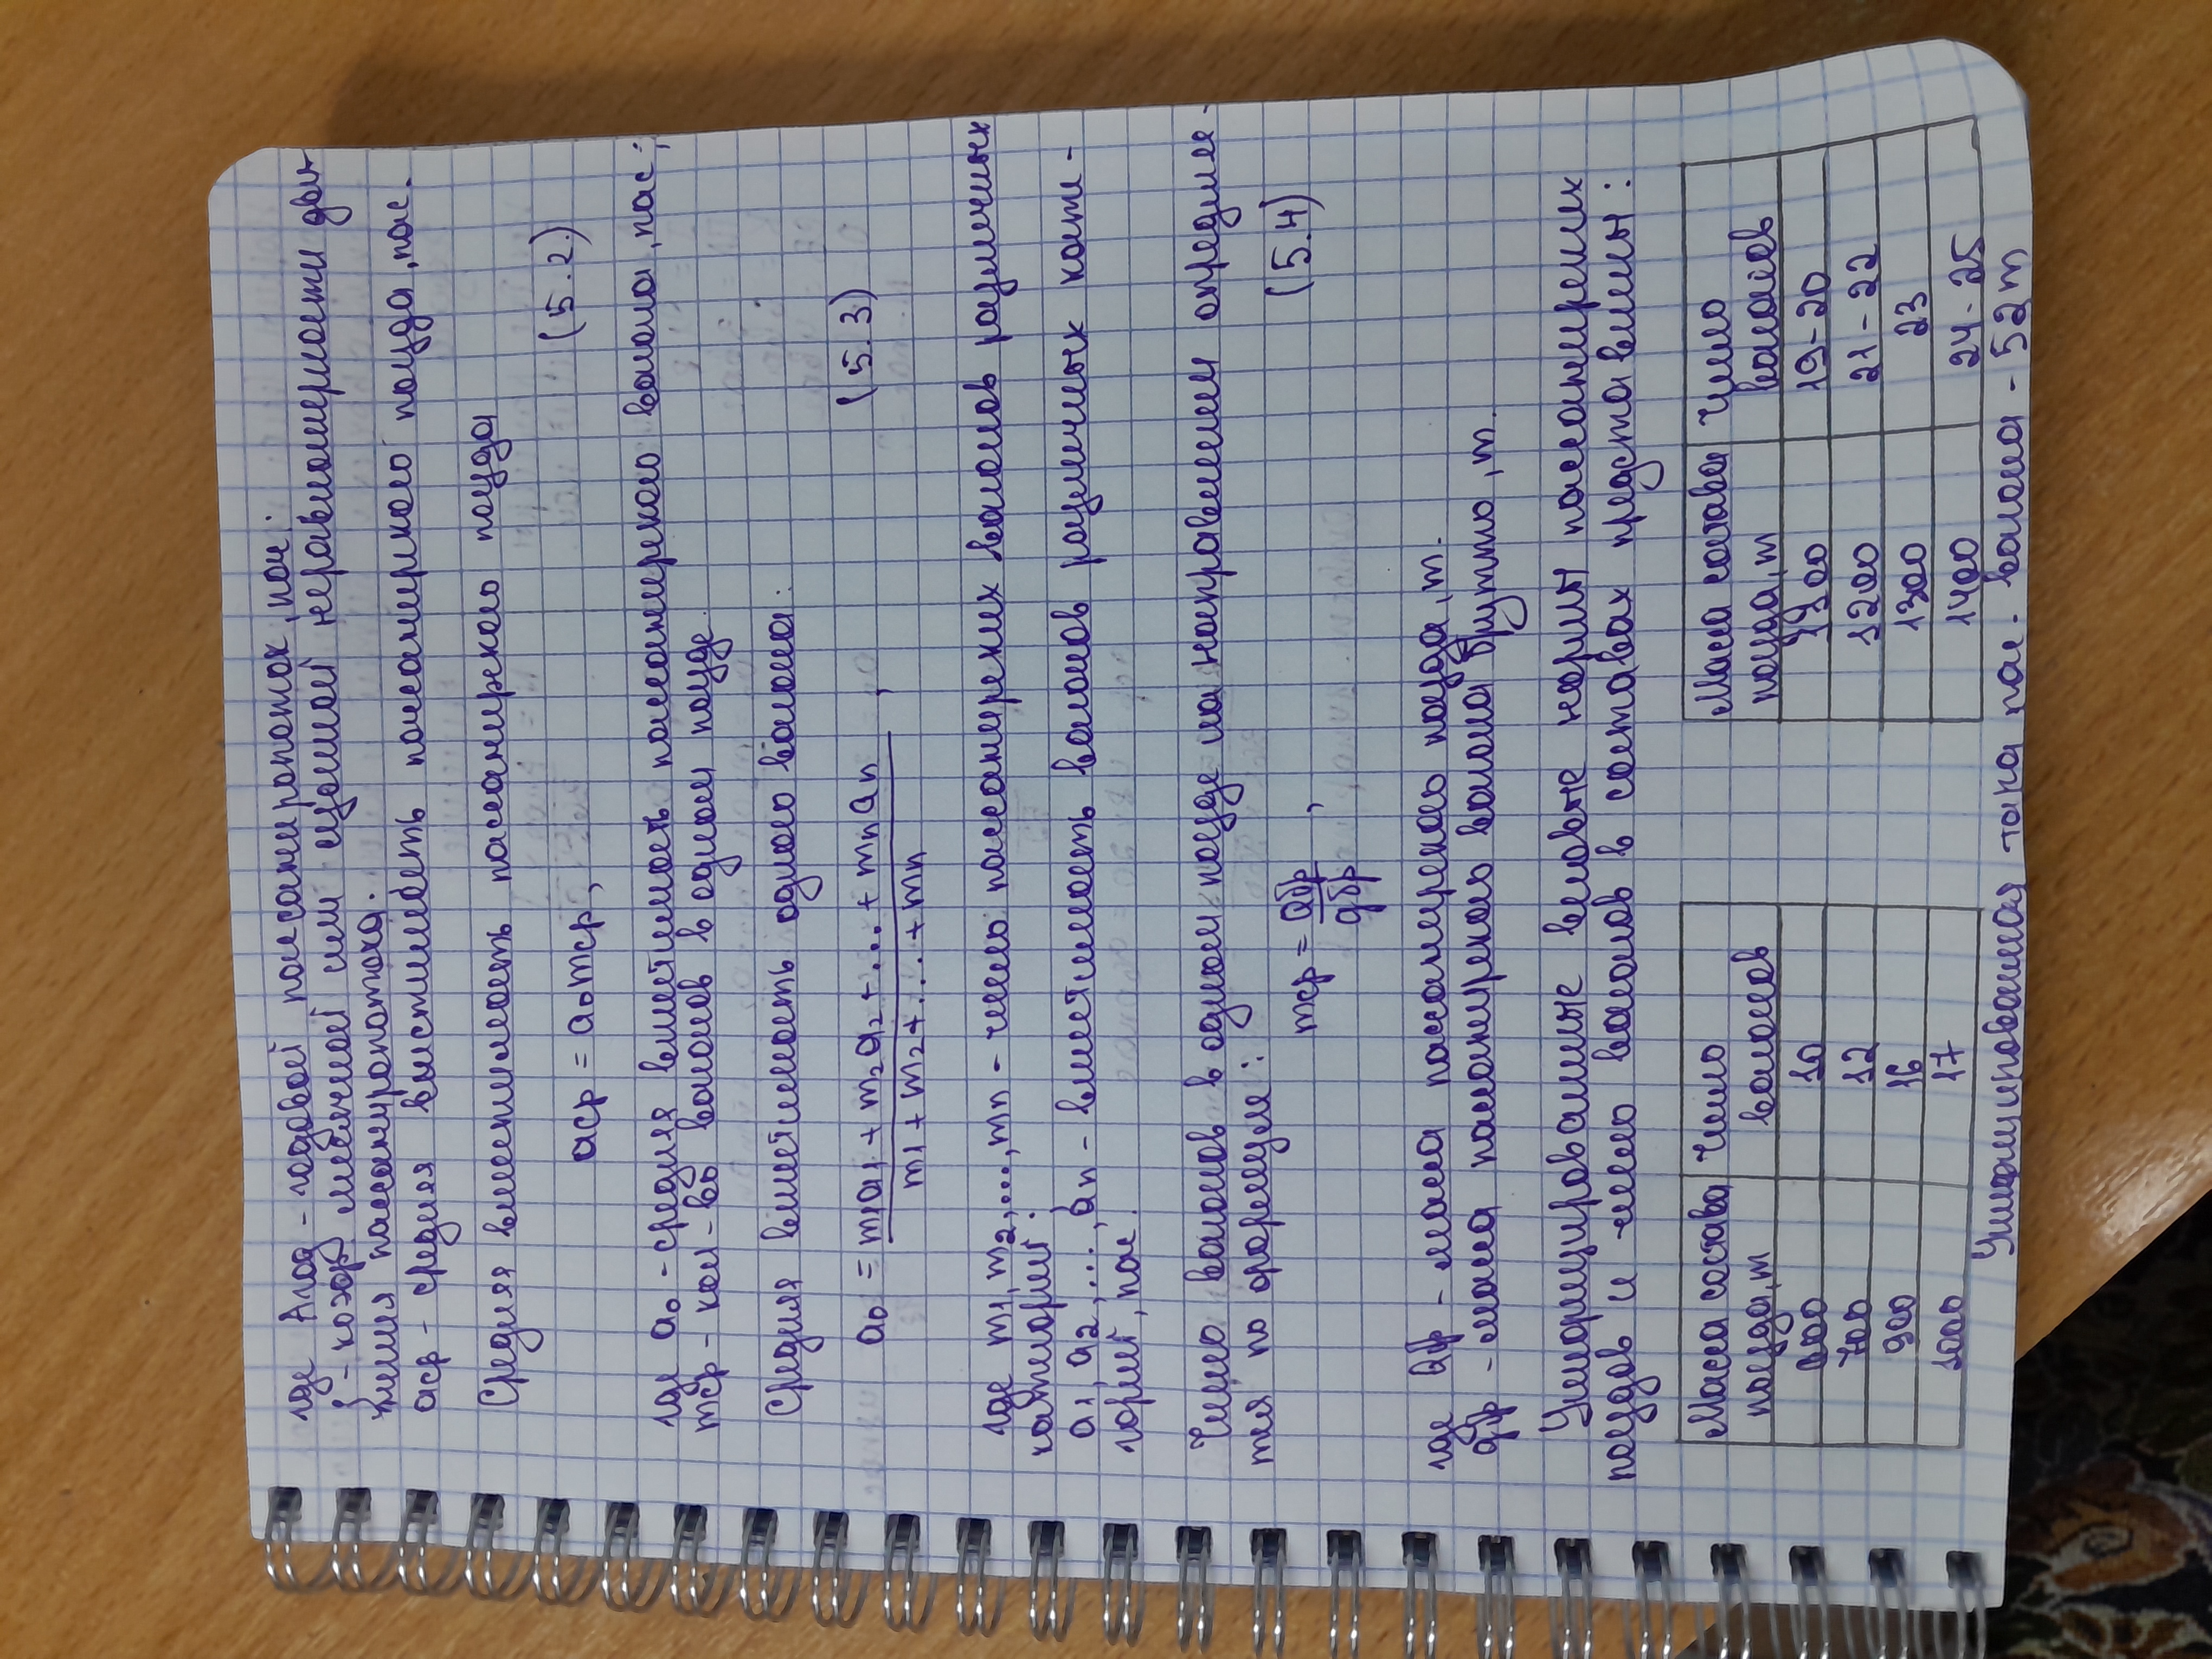 где Aгод - годовой пассажиропоток, пас.
γ - коэф месячной или суточной неравномерности дви-
жения пассажиропотока.
aср - средняя вместимость пассажирского поезда, пас.
Средняя вместимость пассажирского поезда
aср = aоmср, (5.2)
где aо - средняя вместимость пассажирского вагона, пас.;
mср - кол-во вагонов в одном поезде.
Средняя вместимость одного вагона:
aо = m1a1 + m2a2 + ... + mnan / m1 + m2 + ... + mn , (5.3)
где m1, m2, ..., mn - число пассажирских вагонов различных
категорий.
a1, a2, ..., an - вместимость вагонов различных кате-
горий, пас.
Число вагонов в одном поезде на направлении определяе-
тся по формуле:
mср = Qбр / qбр , (5.4)
где Qбр - масса пассажирского поезда, т.
qбр - масса пассажирского вагона брутто, т.
Унифицированные весовые нормы пассажирских
поездов и число вагонов в составах представлены:
Масса состава поезда, т | Число вагонов | Масса состава поезда, т | Число вагонов
600 | 10 | 1100 | 19-20
700 | 12 | 1200 | 21-22
900 | 16 | 1300 | 23
1000 | 17 | 1400 | 24-25
тара пас. вагона - 52 т